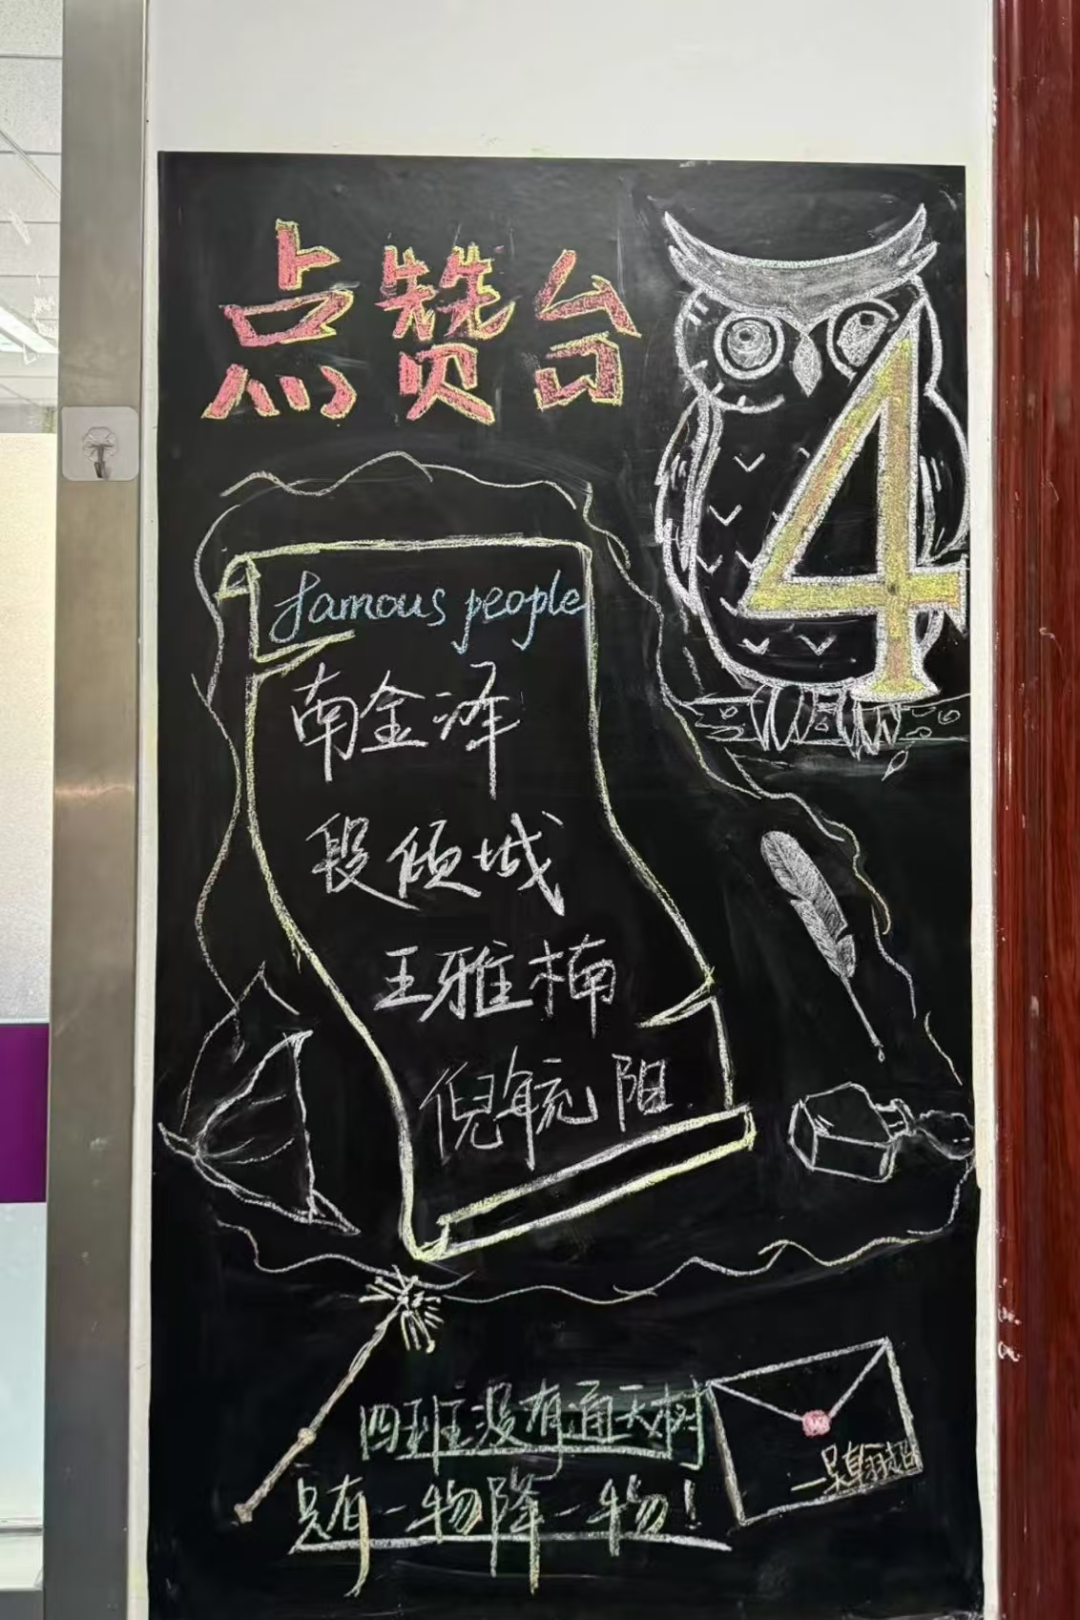 点赞台
4
famous people
南金泽
段倾城
王雅楠
倪毓阳
四班没有通天树
只有一物降一物！
—吴翰超